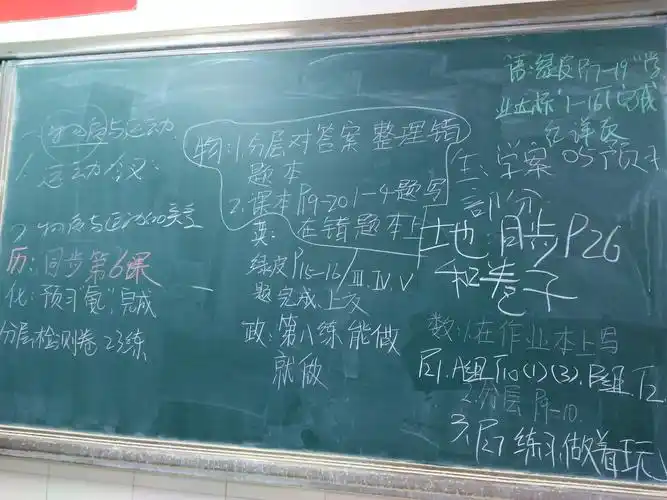 一 物质与运动
1. 运动含义:
2. 物质与运动的关系
历: 同步第6课
化: 预习"氯", 完成
分层检测卷 23练
物: 1. 分层对答案 整理错
题本
2. 课本P19-20 1-4题写
在错题本上
英:
绿皮P15-16/III.IV.V
题完成上交
政: 第八练 能做
就做
语: 绿皮P17-19 "学
业达标" 1-16 (完成)
生: 学案 05预习
部分
地: 同步P26
和卷子
数: 1. 在作业本上写
A组 T10 (1)(3). B组 T2
2. 分层 P9-10
练习, 做着玩